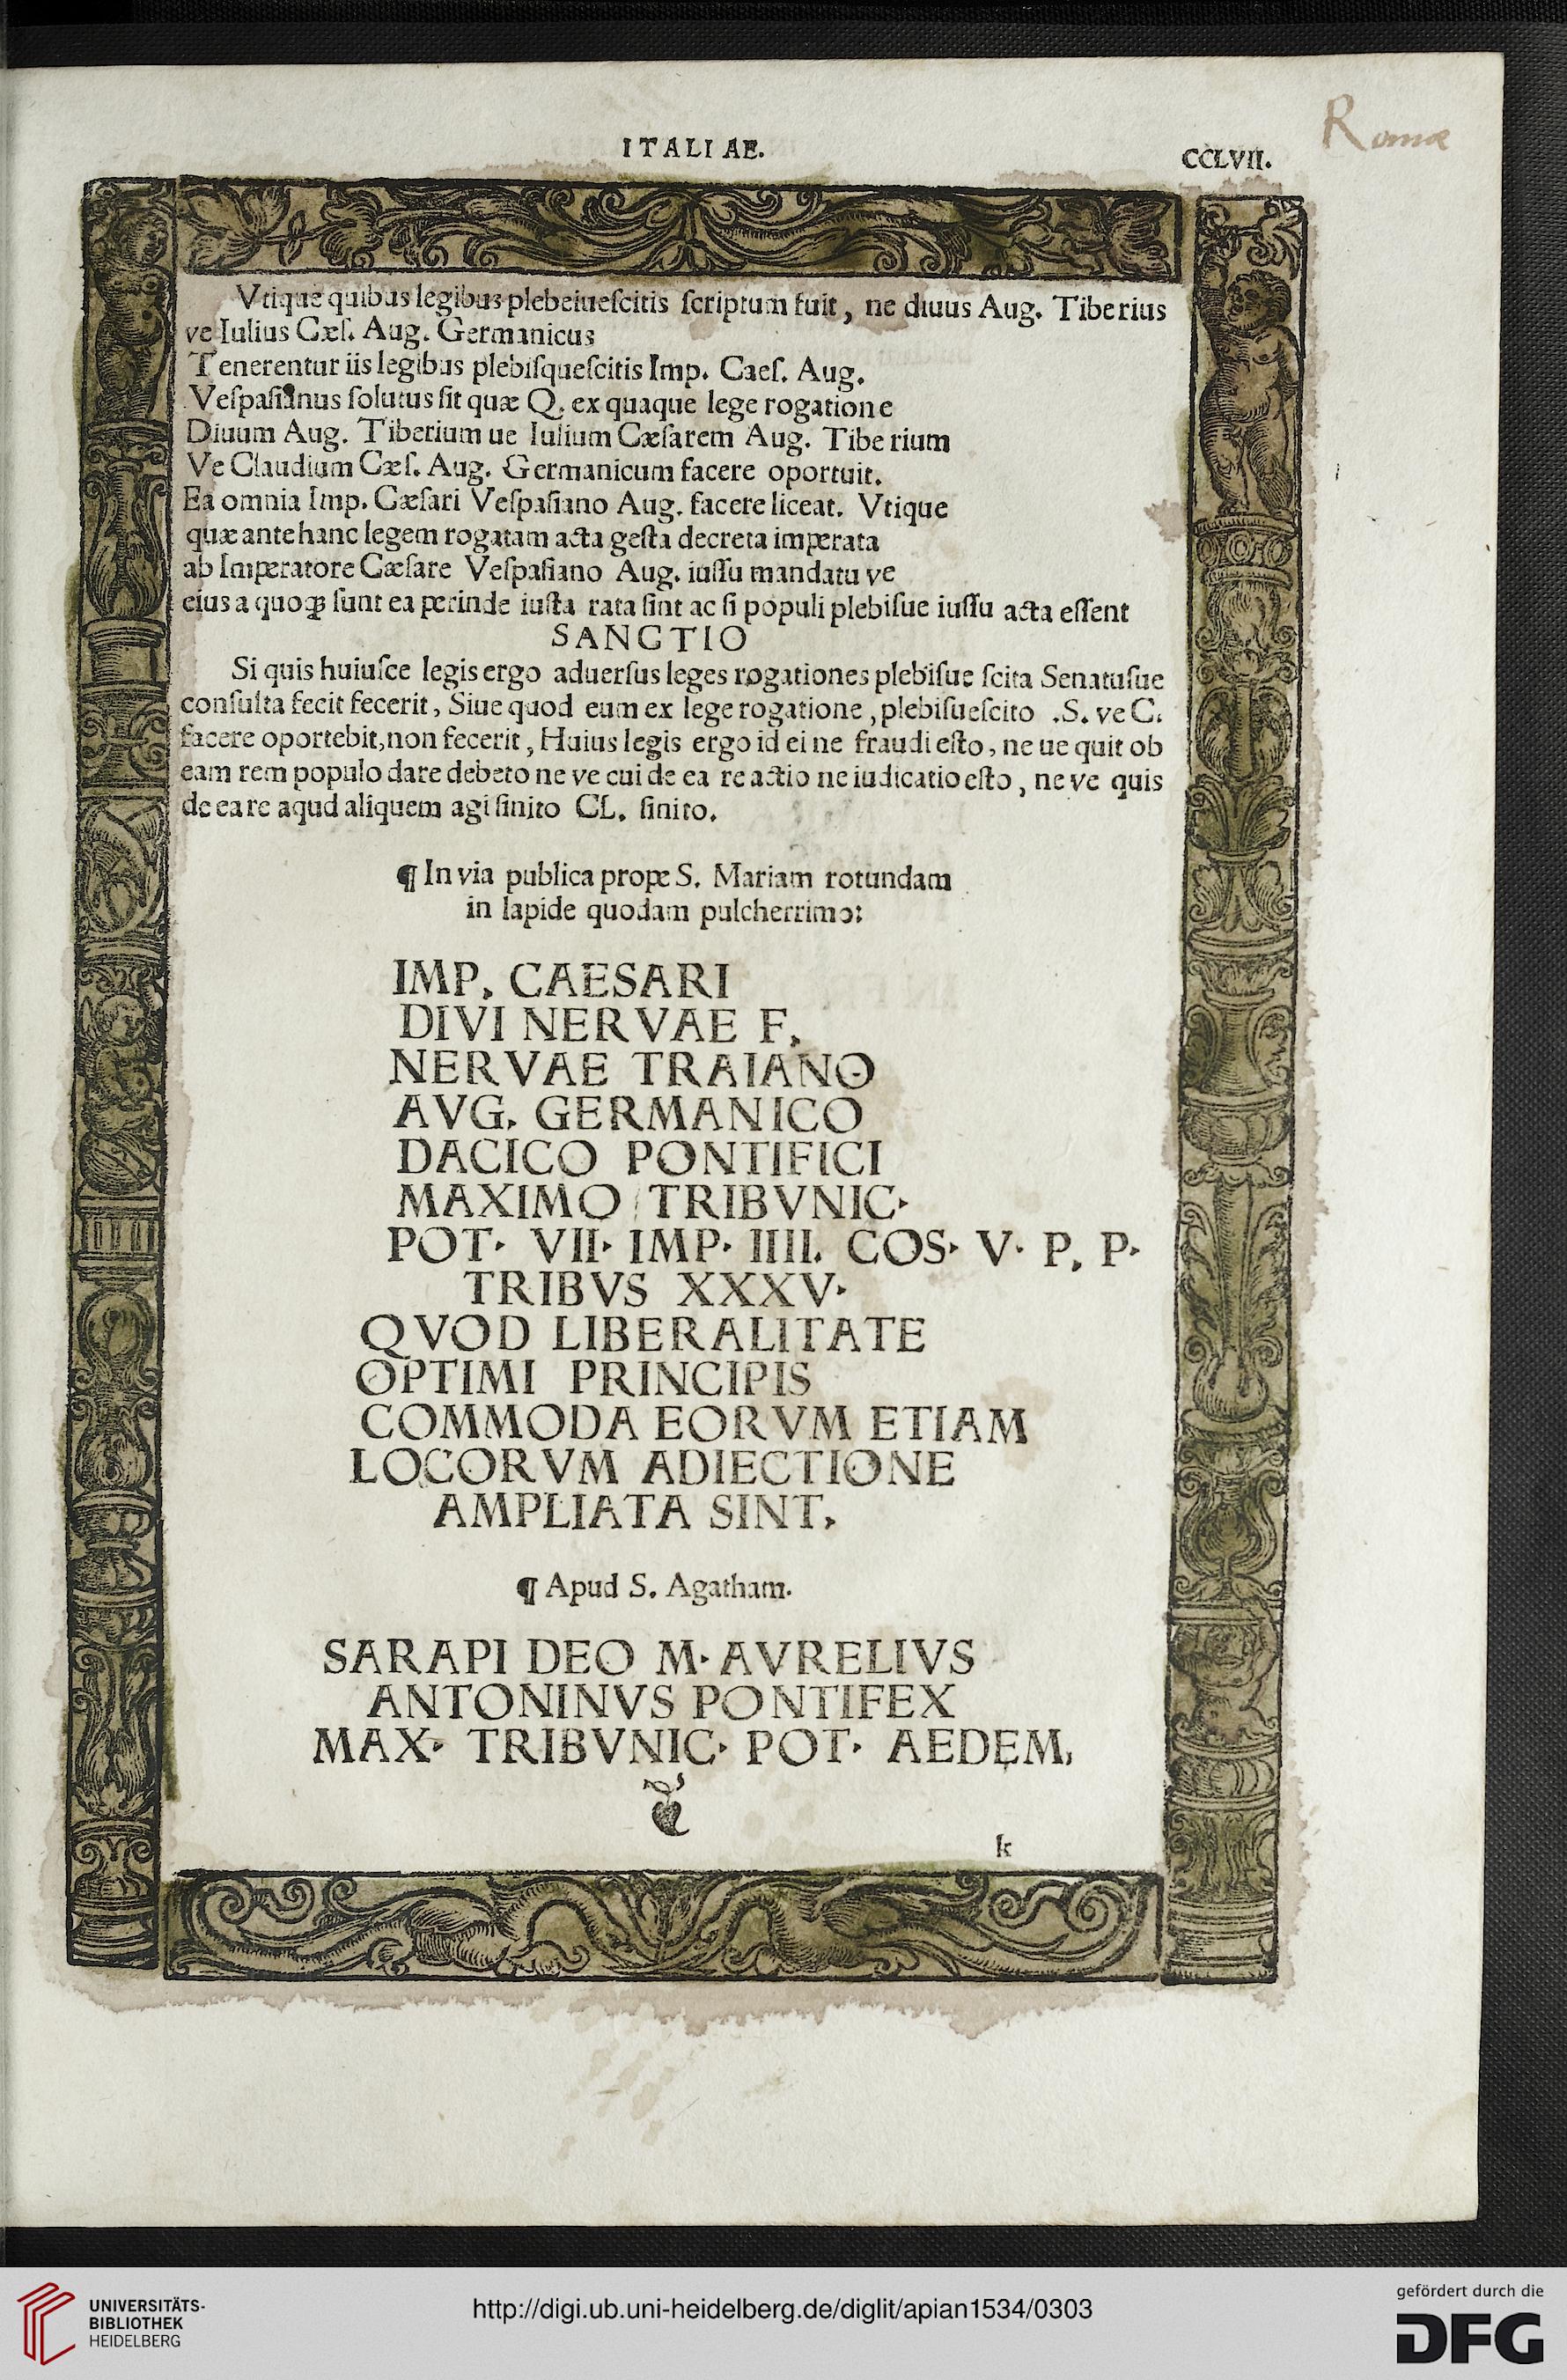 Romæ
ITALIAE.
CCLVII.
Vtique quibus legibus plebeiueſcitis ſcriptum fuit, ne diuus Aug. Tiberius
ve Iulius Cæſ. Aug. Germanicus
Tenerentur iis legibus plebiſqueſcitis Imp. Caeſ. Aug.
Veſpaſianus ſolutus ſit quæ Q. ex quaque lege rogatione
Diuum Aug. Tiberium ue Iulium Cæſarem Aug. Tibe rium
Ve Claudium Cæſ. Aug. Germanicum facere oportuit.
Ea omnia Imp. Cæſari Veſpaſiano Aug. facere liceat. Vtique
quæ ante hanc legem rogatam acta geſta decreta imperata
ab Imperatore Cæſare Veſpaſiano Aug. iuſſu mandatu ve
eius a quoqꝫ ſunt ea perinde iuſta rata ſint ac ſi populi plebiſue iuſſu acta eſſent
SANCTIO
Si quis huiuſce legis ergo aduerſus leges rogationes plebiſue ſcita Senatuſue
conſulta fecit fecerit, Siue quod eum ex lege rogatione, plebiſueſcito .S. ve C.
facere oportebit, non fecerit, Huius legis ergo id ei ne fraudi eſto, ne ue quit ob
eam rem populo dare debeto ne ve cui de ea re actio ne iudicatio eſto, ne ve quis
de ea re aqud aliquem agi ſinito CL. ſinito.
¶ In via publica prope S. Mariam rotundam
in lapide quodam pulcherrimo:
IMP. CAESARI
DIVI NERVAE F.
NERVAE TRAIANO
AVG. GERMANICO
DACICO PONTIFICI
MAXIMO TRIBVNIC·
POT· VII· IMP· IIII. COS· V· P. P·
TRIBVS XXXV·
QVOD LIBERALITATE
OPTIMI PRINCIPIS
COMMODA EORVM ETIAM
LOCORVM ADIECTIONE
AMPLIATA SINT.
¶ Apud S. Agatham.
SARAPI DEO M· AVRELIVS
ANTONINVS PONTIFEX
MAX· TRIBVNIC· POT· AEDEM,
k
UNIVERSITÄTS-
BIBLIOTHEK
HEIDELBERG
http://digi.ub.uni-heidelberg.de/diglit/apian1534/0303
gefördert durch die
DFG